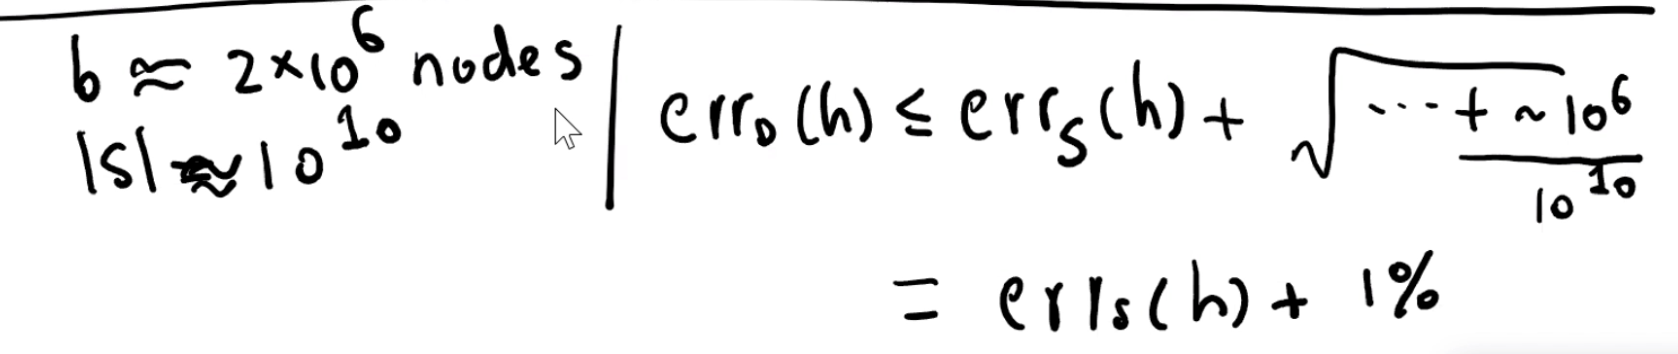 b ≈ 2×10^6 nodes
|S| ≈ 10^10
err_D(h) ≤ err_S(h) + √(··· + ~10^6 / 10^10)
= err_S(h) + 1%